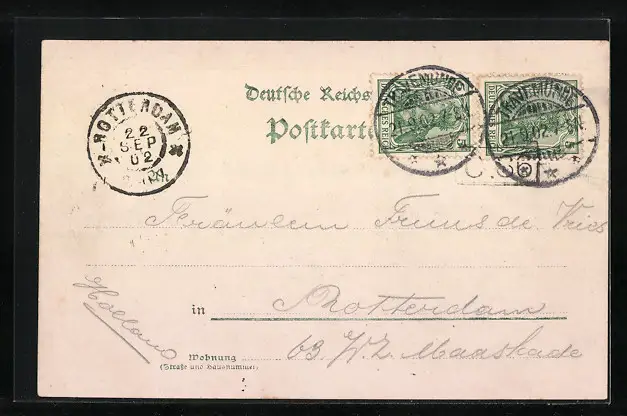 Deutsche Reichs
Postkarte
ROTTERDAM
22
SEP
02
TRAVEMÜNDE
21.9.02
TRAVEMÜNDE
21.9.02
DEUTSCHES REICH
Fräulein de Vries
in Rotterdam
Holland
63 Maaskade
Wohnung
(Straße und Hausnummer)